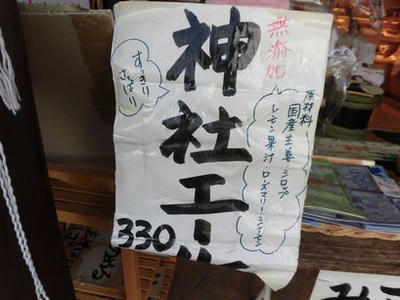 無添加
神社エール
330
すっきり
さっぱり
原材料
国産生姜・シロップ
レモン果汁・ローズマリー・シナモン